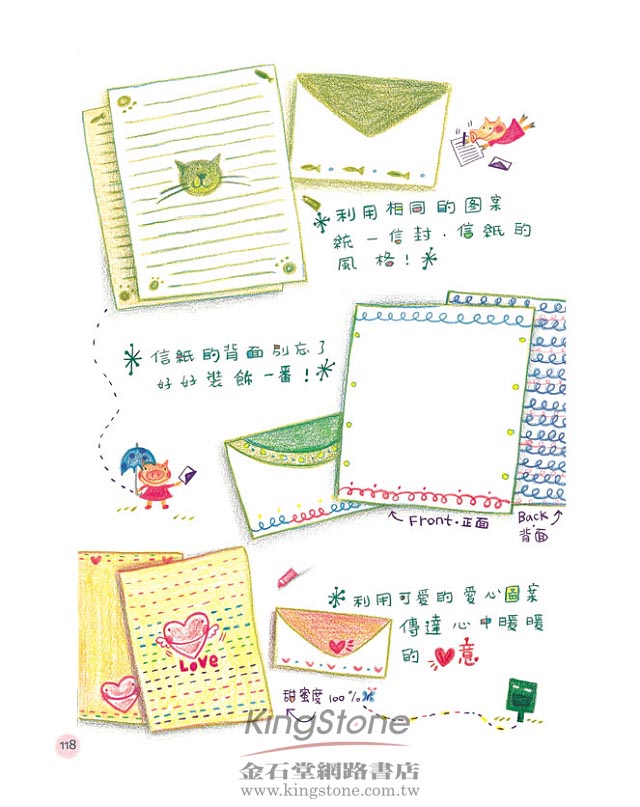 利用相同的图案
統一信封.信紙的
風格!
信紙的背面別忘了
好好裝飾一番!
Front.正面
Back
背面
利用可愛的愛心圖案
傳達心中暖暖
的♥意
LOVE
甜蜜度100%
118
KingStone
金石堂網路書店
www.kingstone.com.tw